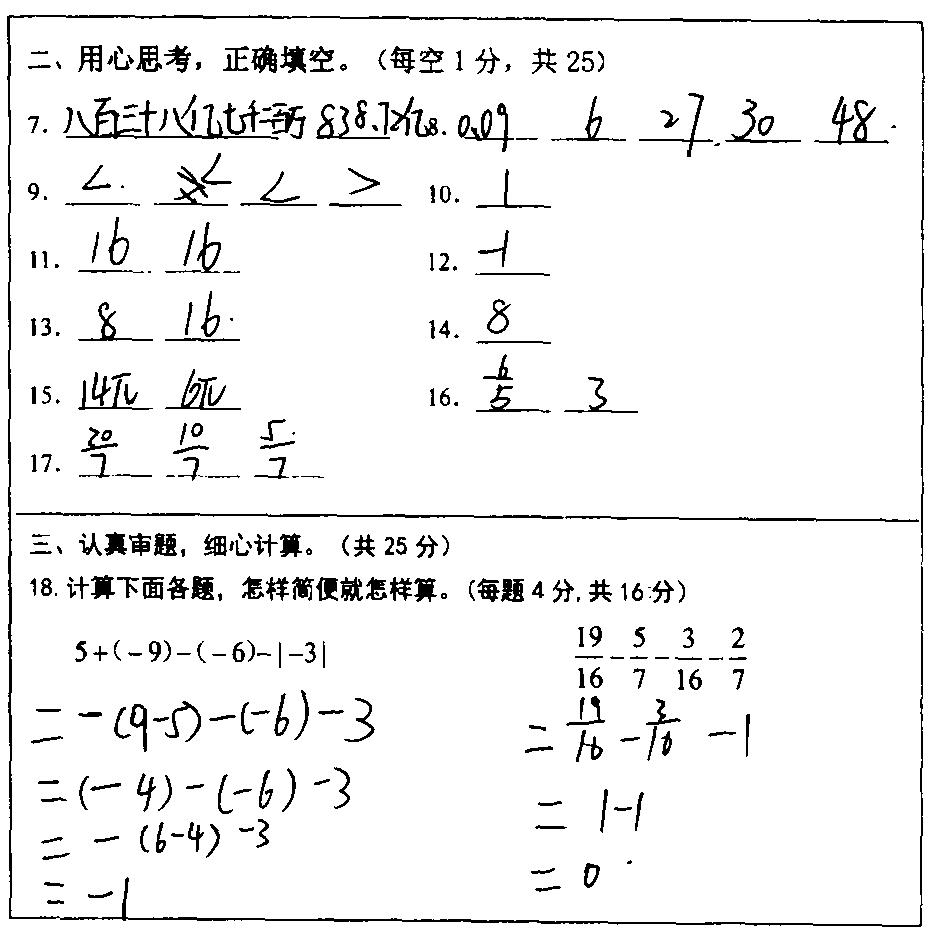 二、用心思考，正确填空。（每空1分，共25）
7. 八百三十八亿七千二百万 838.72亿 8. 0.09 6 27 30 48
9. < < < > 10. 1
11. 16 16 12. -1
13. 8 16 14. 8
15. 14π 6π 16. 6/5 3
17. 20/7 10/7 5/7
三、认真审题，细心计算。（共25分）
18. 计算下面各题，怎样简便就怎样算。（每题4分,共16分）
5+(-9)-(-6)-|-3| 19/16-5/7-3/16-2/7
=-(9-5)-(-6)-3 =19/16-3/16-1
=(-4)-(-6)-3 =1-1
=-(6-4)-3 =0
=-1